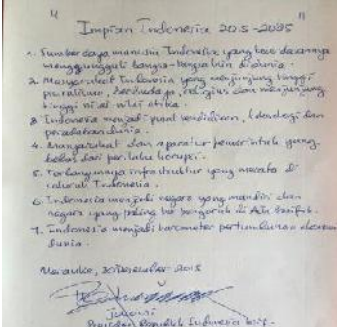 Impian Indonesia 2015-2085
1. Sumber daya manusia Indonesia yang
mengungguli bangsa-bangsa lain di dunia.
2. Masyarakat Indonesia yang menjunjung tinggi
pluralisme, berbudaya, religius dan menjunjung
tinggi nilai-nilai etika.
3. Indonesia menjadi pusat pendidikan, teknologi dan
peradaban dunia.
4. Masyarakat dan aparatur pemerintah yang
bebas dari perilaku korupsi.
5. Terbangunnya infrastruktur yang merata di
seluruh Indonesia.
6. Indonesia menjadi negara yang mandiri dan
negara yang paling berpengaruh di Asia Pasifik.
7. Indonesia menjadi barometer pertumbuhan ekonomi
dunia.
Merauke, 30 Desember 2015
Jokowi
Presiden Republik Indonesia